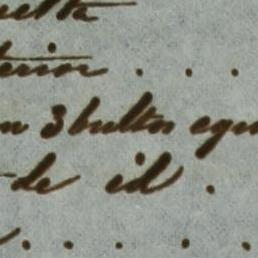 uelta
terior . . .
n 3 bultos equi
de id .
. . . . .